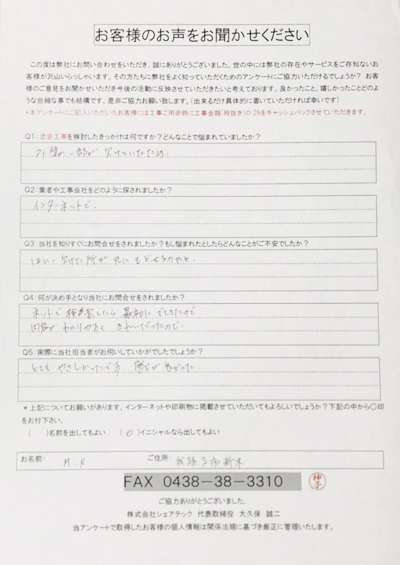 お客様のお声をお聞かせください
この度は弊社にお問い合わせをいただき、誠にありがとうございました。世の中には弊社の存在やサービスをご存知ないお
客様が沢山いらっしゃいます。その方たちに弊社をよく知っていただくためのアンケートにご協力いただけるでしょうか？ お客
様のご意見をお聞かせいただき今後の活動に反映させていただきたいと考えております。良かったこと、嬉しかったことどのよ
うな些細な事でも結構です。是非ご協力お願い致します。（出来るだけ具体的に書いていただければ幸いです）
*本アンケートにご記入いただいたお客様には工事ご用命時に工事金額（税抜き）の 2%をキャッシュバックさせていただきます。
Q1：塗装工事を検討したきっかけは何ですか？どんなことで悩まれていましたか？
外壁の一部が欠けていたため。
Q2：業者や工事会社をどのように探されましたか？
インターネットで。
Q3：当社を知りすぐにお問合せをされましたか？もし悩まれたとしたらどんなことがご不安でしたか？
はい。欠けた所が元にもどせるかなと。
Q4：何が決め手となり当社にお問合せをされましたか？
ネットで検索したら最初にでてきたので
内容がわかりやすくきれいだったので。
Q5：実際に当社担当者がお伺いしていかがでしたでしょうか？
とてもやさしかったです
*上記についてお願いがあります。インターネットや印刷物に掲載させていただいてもよろしいでしょうか？下記の中から〇印
をお付下さい。
（　）名前を出してもよい （〇）イニシャルなら出してもよい
お名前： ご住所： 我孫子市新木
FAX 0438-38-3310
ご協力ありがとうございました。
株式会社シェアテック 代表取締役 大久保 誠二
当アンケートで取得したお客様の個人情報は関係法規に基づき厳正に管理いたします。